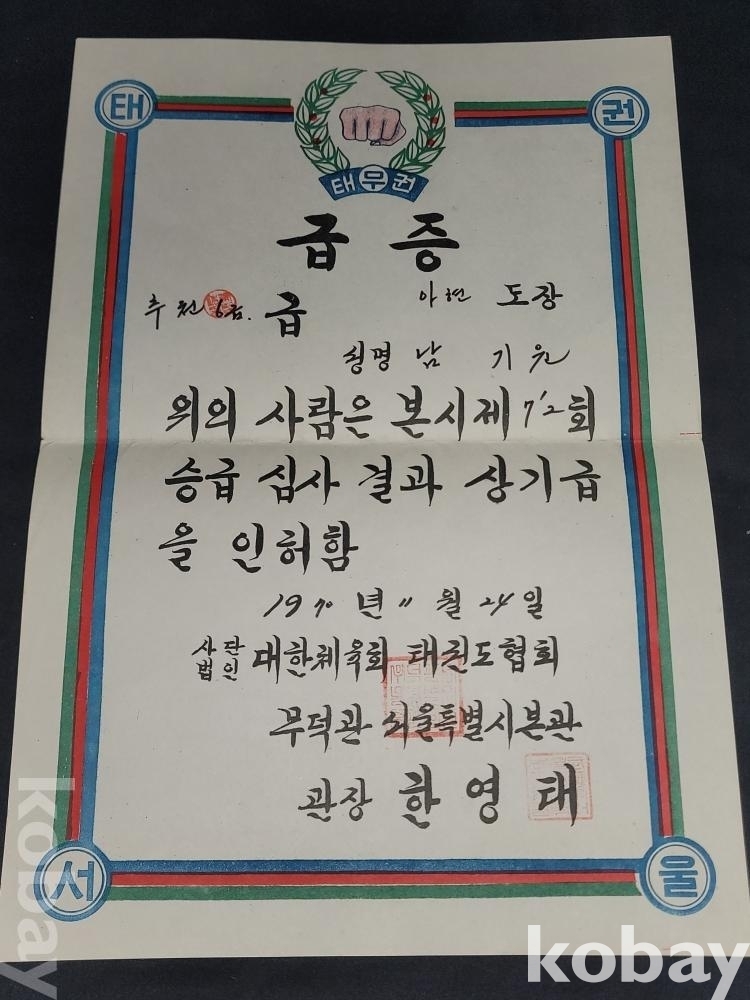 태 권
태무권
급 증
추천 6급. 급 아현 도장
성명 남 기 원
위의 사람은 본시제 72회
승급 심사 결과 상기급
을 인허함
1970년 11월 24일
사단법인 대한체육회 태권도협회
무덕관 서울특별시본관
관장 한영태
서 울
kobay
kobay